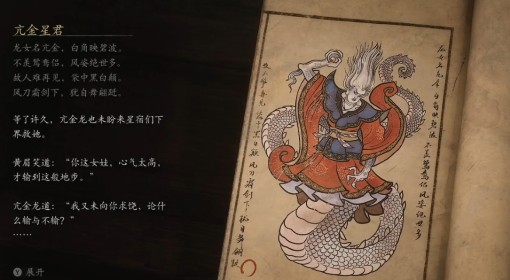 亢金星君
龙女名亢金，白角映碧波。
不羡鸳鸯侣，风姿绝世多。
故人难再见，袋中黑白颠。
风刀霜剑下，犹自舞翩跹。
等了许久，亢金龙也未盼来星宿们下
界救她。
黄眉笑道：“你这女娃，心气太高，
才输到这般地步。”
亢金龙道：“我又未向你求饶，论什
么输与不输？”
……
Y 展开